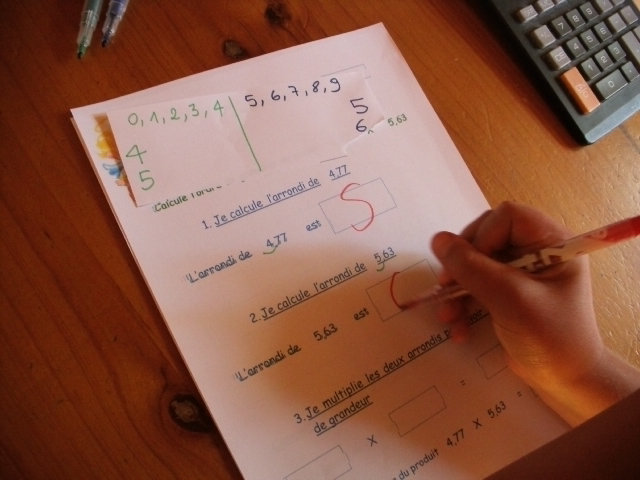 0, 1, 2, 3, 4
4
5
5, 6, 7, 8, 9
5
6
x 5,63
1. Je calcule l'arrondi de 4,77
L'arrondi de 4,77 est 5
2. Je calcule l'arrondi de 5,63
L'arrondi de 5,63 est
3. Je multiplie les deux arrondis
de grandeur
X =
du produit 4,77 X 5,63 =
7 8 9
4 5 6